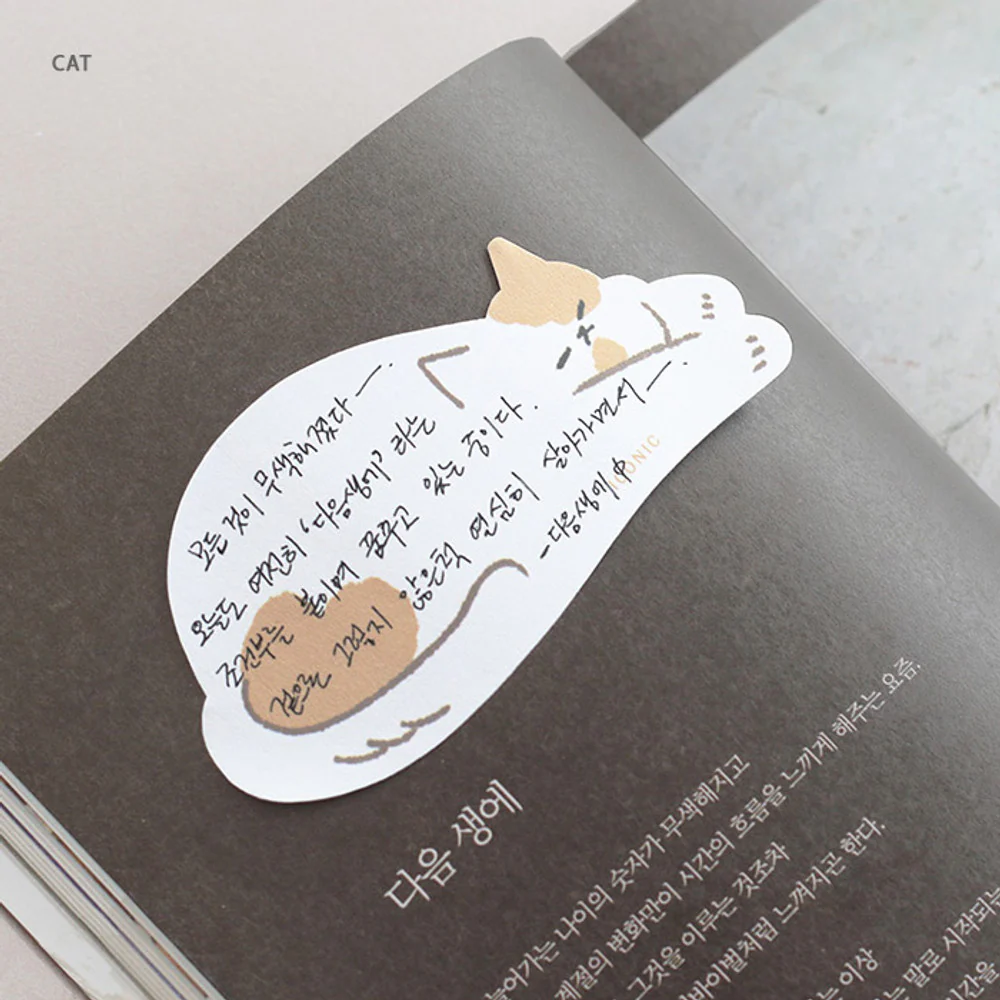 CAT
모든 것이 무색해졌다—.
오늘도 여전히 '다음생에' 라는
조건부를 붙이며 꿈꾸고 있는 중이다.
겉으론 그렇지 않은척 열심히 살아가면서—.
-다음생에 中
ICONIC
다음 생에
늘어가는 나이의 숫자가 무색해지고
계절의 변화만이 시간의 흐름을 느끼게 해주는 요즘.
그것을 이루는 것조차
처럼 느껴지곤 한다.
이상
말로 시작되는
시간을